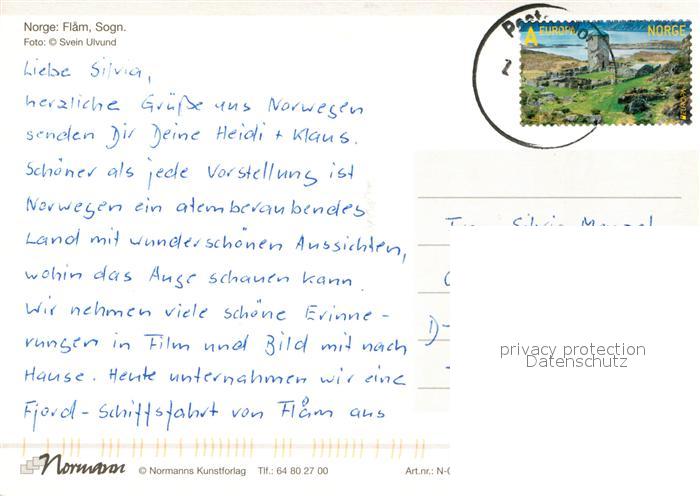 Norge: Flåm, Sogn.
Foto: © Svein Ulvund
Liebe Silvia,
herzliche Grüße aus Norwegen
senden Dir Deine Heidi + Klaus.
Schöner als jede Vorstellung ist
Norwegen ein atemberaubendes
Land mit wunderschönen Aussichten,
wohin das Auge schauen kann.
Wir nehmen viele schöne Erinne-
rungen in Film und Bild mit nach
Hause. Heute unternahmen wir eine
Fjord-Schiffsfahrt von Flåm aus
A EUROPA NORGE
Silvia
D-
privacy protection
Datenschutz
Normann © Normanns Kunstforlag Tlf.: 64 80 27 00 Art.nr.: N-